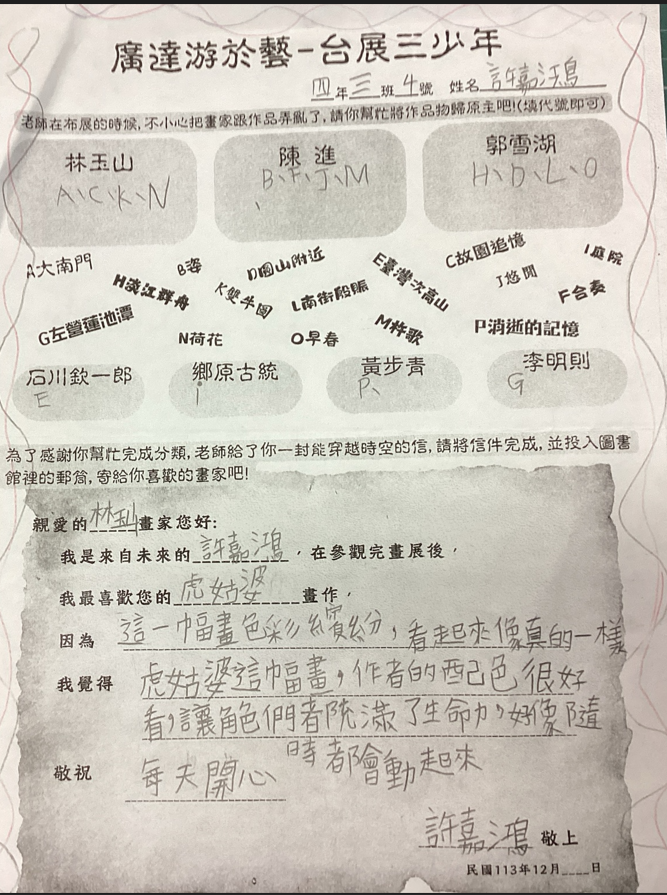 廣達游於藝-台展三少年
四年三班4號 姓名許嘉鴻
老師在布展的時候,不小心把畫家跟作品弄亂了,請你幫忙將作品物歸原主吧!(填代號即可)
林玉山 陳進 郭雪湖
A、C、K、N B、F、J、M H、D、L、O
A大南門 B姿 D圓山附近 E臺灣次高山 C故園追憶 I庭院
H淡江群舟 K雙牛圖 L南街殷賑 J悠閒 F合奏
G左營蓮池潭 N荷花 O早春 M杵歌 P消逝的記憶
石川欽一郎 鄉原古統 黃步青 李明則
E i P、 G
為了感謝你幫忙完成分類,老師給了你一封能穿越時空的信,請將信件完成,並投入圖書
館裡的郵筒,寄給你喜歡的畫家吧!
親愛的林玉山畫家您好:
我是來自未來的許嘉鴻,在參觀完畫展後,
我最喜歡您的虎姑婆畫作,
因為 這一幅畫色彩繽紛,看起來像真的一樣
我覺得 虎姑婆這幅畫,作者的配色很好
看,讓角色們都充滿了生命力,好像隨
時都會動起來
敬祝 每天開心
許嘉鴻 敬上
民國113年12月____日